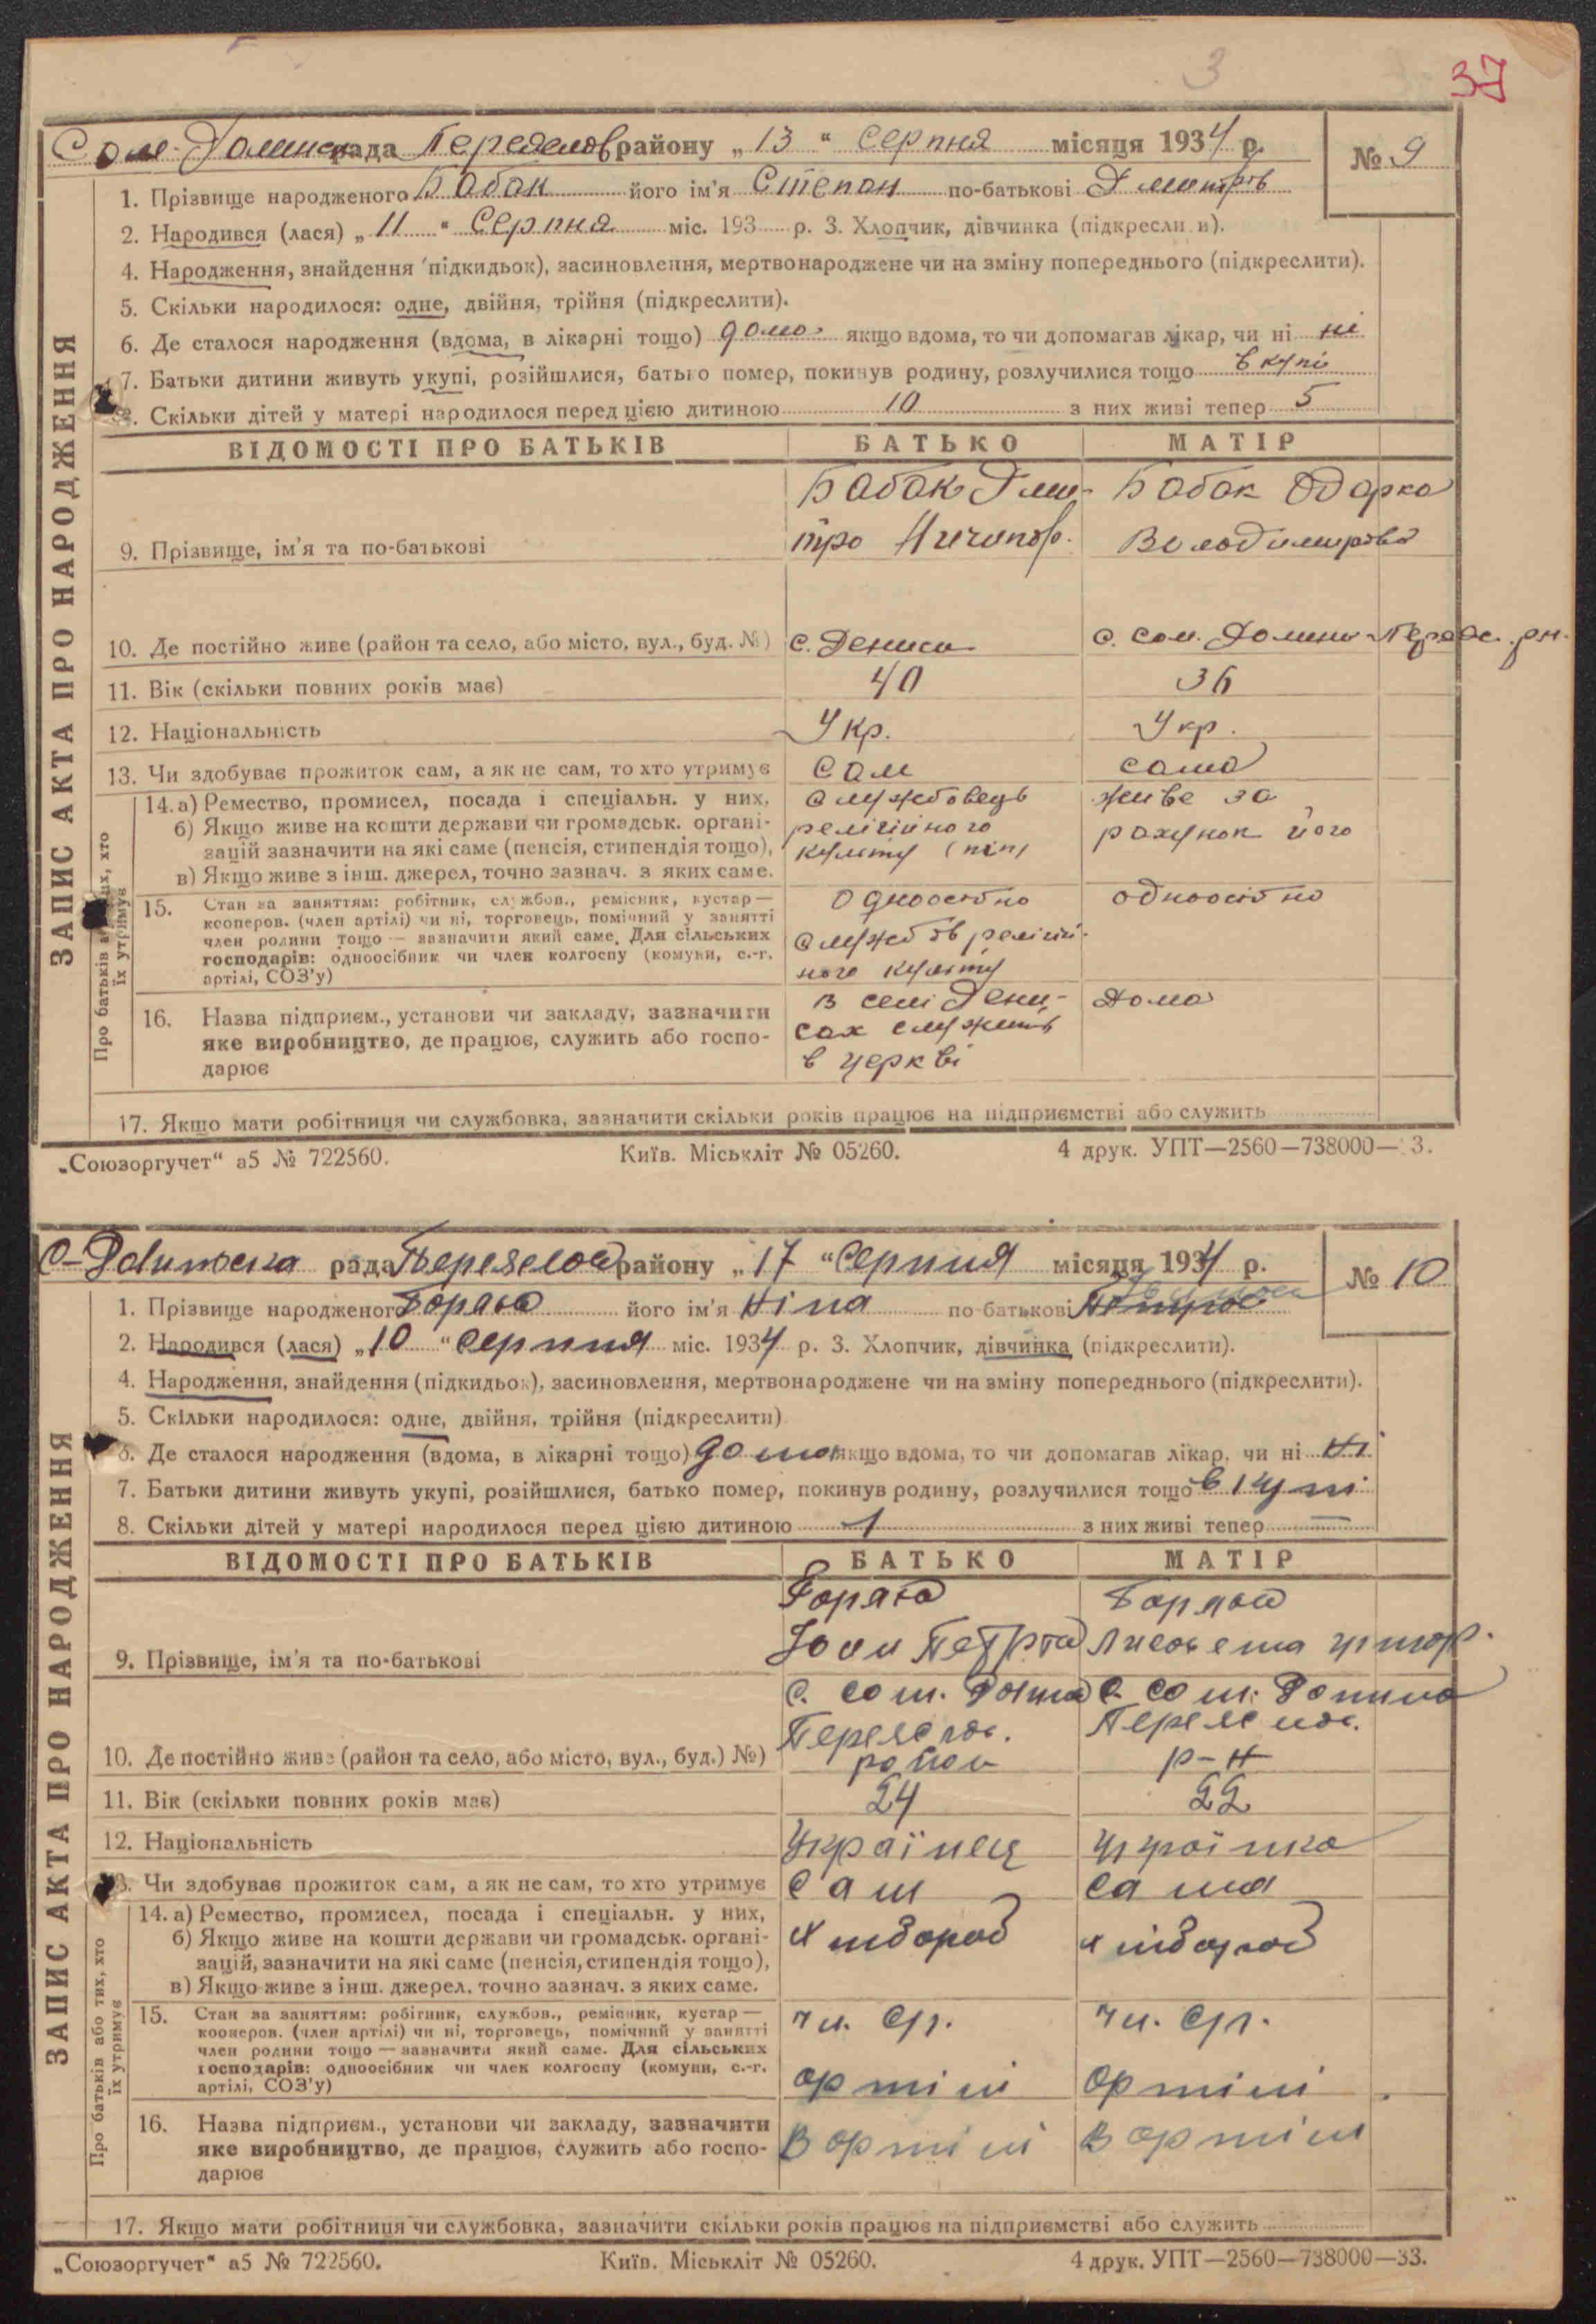 3
37
Сом. Долинська рада Переяслов району „13“ Серпня місяця 1934 р.
№ 9
1. Прізвище народженого Бабак його ім'я Степан по-батькові Дмитров
2. Народився (лася) „11“ Серпня міс. 193 р. 3. Хлопчик, дівчинка (підкреслити).
4. Народження, знайдення (підкидьок), засиновлення, мертвонароджене чи на зміну попереднього (підкреслити).
5. Скільки народилося: одне, двійня, трійня (підкреслити).
6. Де сталося народження (вдома, в лікарні тощо) дома якщо вдома, то чи допомагав лікар, чи ні ні
7. Батьки дитини живуть укупі, розійшлися, батько помер, покинув родину, розлучилися тощо вкупі
8. Скільки дітей у матері народилося перед цією дитиною 10 з них живі тепер 5
ВІДОМОСТІ ПРО БАТЬКІВ БАТЬКО МАТІР
Бабак Дми- Бабак Одарка
9. Прізвище, ім'я та по-батькові тро Ничипор. Володимирова
10. Де постійно живе (район та село, або місто, вул., буд. №) с. Дениси с. Сом. Долина Переяс. рн.
11. Вік (скільки повних років має) 40 36
12. Національність Укр. Укр.
13. Чи здобуває прожиток сам, а як не сам, то хто утримує Сам сама
14. а) Ремество, промисел, посада і спеціальн. у них, службовець живе за
б) Якщо живе на кошти держави чи громадськ. органі- релігійного рахунок його
зацій зазначити на які саме (пенсія, стипендія тощо), культу (піп)
в) Якщо живе з інш. джерел, точно зазнач. з яких саме.
15. Стан за заняттям: робітник, службов., ремісник, кустар— одноосібно одноосібно
кооперов. (член артілі) чи ні, торговець, помічний у занятті
член родини тощо — зазначити який саме. Для сільських службов релігій-
господарів: одноосібник чи член колгоспу (комуни, с.-г.
артілі, СОЗ'у) ного культу
16. Назва підприєм., установи чи закладу, зазначити В селі Дени- Дома
яке виробництво, де працює, служить або госпо- сах служить
дарює в церкві
17. Якщо мати робітниця чи службовка, зазначити скільки років працює на підприємстві або служить
ЗАПИС АКТА ПРО НАРОДЖЕННЯ
Про батьків або тих, хто
їх утримує
„Союзоргучет“ а5 № 722560. Київ. Міськліт № 05260. 4 друк. УПТ—2560—738000—33.
С-Долинська рада Переяслов району „17“ Серпня місяця 1934 р.
№ 10
1. Прізвище народженого його ім'я Ніна по-батькові
2. Народився (лася) „10“ серпня міс. 1934 р. 3. Хлопчик, дівчинка (підкреслити).
4. Народження, знайдення (підкидьок), засиновлення, мертвонароджене чи на зміну попереднього (підкреслити).
5. Скільки народилося: одне, двійня, трійня (підкреслити)
6. Де сталося народження (вдома, в лікарні тощо) дома якщо вдома, то чи допомагав лікар, чи ні ні
7. Батьки дитини живуть укупі, розійшлися, батько помер, покинув родину, розлучилися тощо вкупі
8. Скільки дітей у матері народилося перед цією дитиною 1 з них живі тепер —
ВІДОМОСТІ ПРО БАТЬКІВ БАТЬКО МАТІР
9. Прізвище, ім'я та по-батькові
с. Сом. Долина с. Сом. Долина
Переяслов. Переяслов.
10. Де постійно живе (район та село, або місто, вул., буд.) №) район р-н
11. Вік (скільки повних років має) 24 22
12. Національність Українец Українка
13. Чи здобуває прожиток сам, а як не сам, то хто утримує Сам Сама
14. а) Ремество, промисел, посада і спеціальн. у них,
б) Якщо живе на кошти держави чи громадськ. органі- хлібороб хлібороб
зацій, зазначити на які саме (пенсія, стипендія тощо),
в) Якщо живе з інш. джерел, точно зазнач. з яких саме.
15. Стан за заняттям: робітник, службов., ремісник, кустар— чл. с/г. чл. с/г.
кооперов. (член артілі) чи ні, торговець, помічний у занятті
член родини тощо — зазначити який саме. Для сільських
господарів: одноосібник чи член колгоспу (комуни, с.-г.
артілі, СОЗ'у) артілі артілі
16. Назва підприєм., установи чи закладу, зазначити
яке виробництво, де працює, служить або госпо- В артілі В артілі
дарює
17. Якщо мати робітниця чи службовка, зазначити скільки років працює на підприємстві або служить
ЗАПИС АКТА ПРО НАРОДЖЕННЯ
Про батьків або тих, хто
їх утримує
„Союзоргучет“ а5 № 722560. Київ. Міськліт № 05260. 4 друк. УПТ—2560—738000—33.